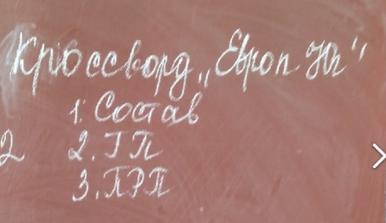 Кроссворд „Европ Юг"
1. Состав
2. ГП
3. ПРП
2